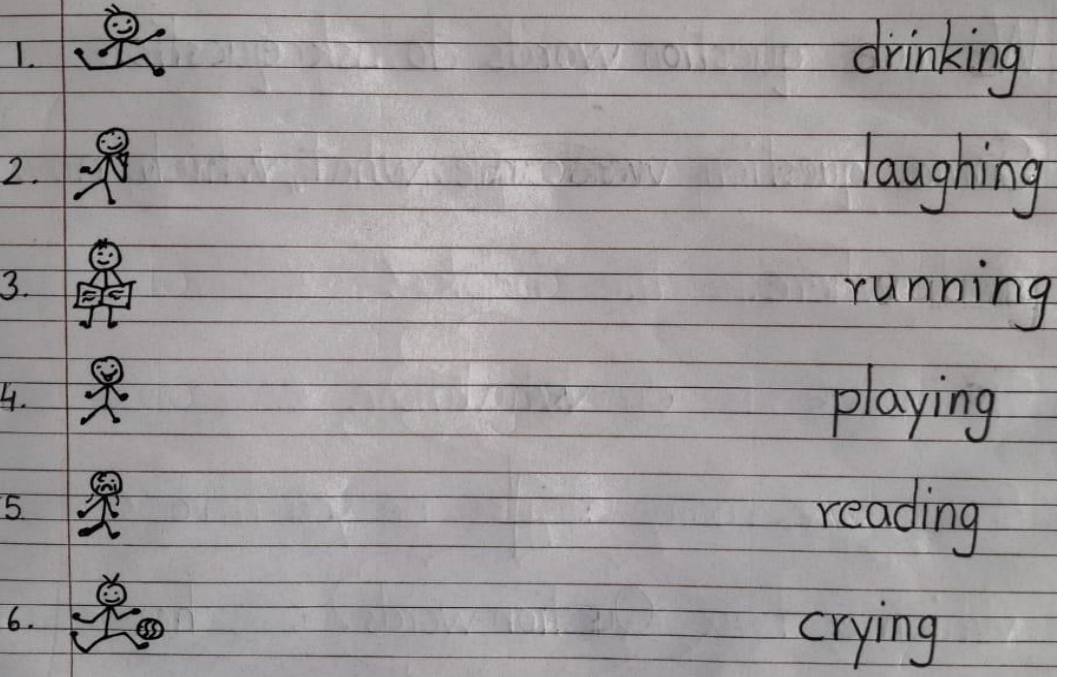 1. drinking
2. laughing
3. running
4. playing
5. reading
6. crying